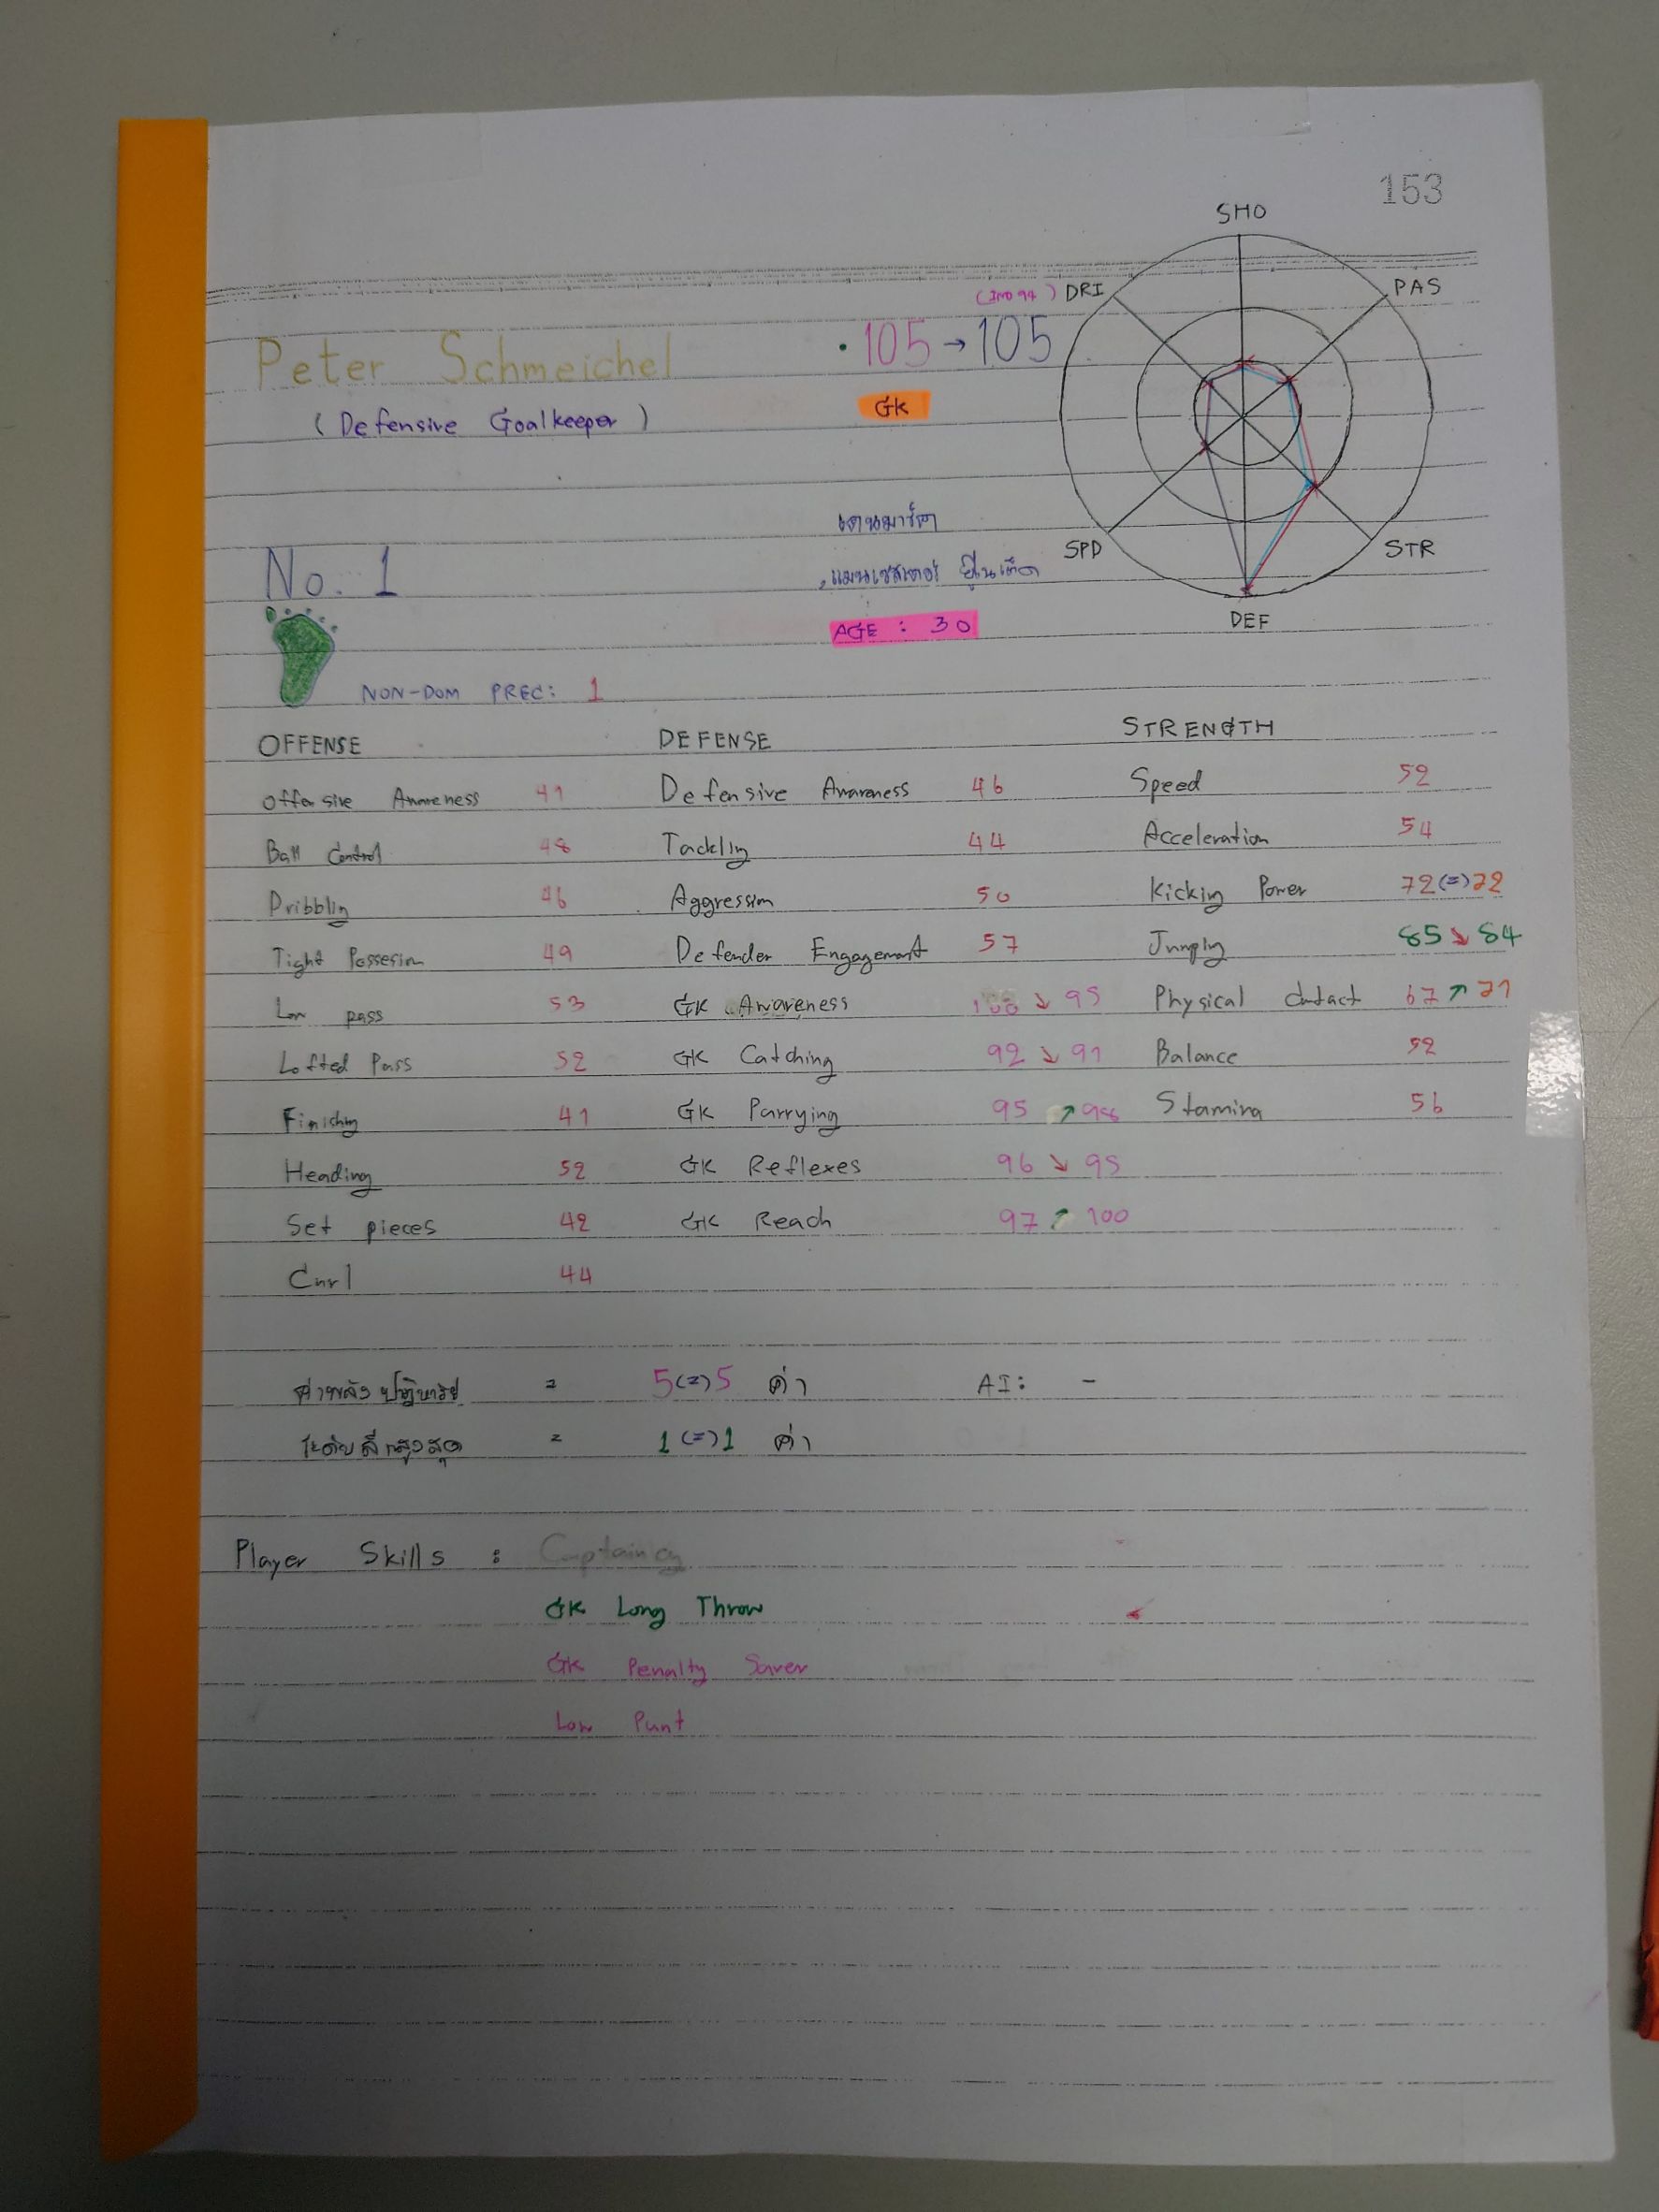 153
SHO
(จาก 94) DRI PAS
Peter Schmeichel · 105 → 105
(Defensive Goalkeeper) GK
เดนมาร์ก
SPD STR
No. 1 แมนเชสเตอร์ ยูไนเต็ด
DEF
AGE : 30
NON-DOM PREC: 1
OFFENSE DEFENSE STRENGTH
Offensive Awareness 41 Defensive Awareness 46 Speed 52
Ball Control 48 Tackling 44 Acceleration 54
Dribbling 46 Aggression 50 Kicking Power 72(=)72
Tight Possesion 49 Defender Engagement 57 Jumping 85 ↘ 84
Low pass 53 GK Awareness ↘ 95 Physical Contact 67 ↗ 71
Lofted Pass 52 GK Catching 92 ↘ 91 Balance 52
Finishing 41 GK Parrying 95 ↗ 98 Stamina 56
Heading 52 GK Reflexes 96 ↘ 95
Set pieces 42 GK Reach 97 ↗ 100
Curl 44
ค่าพลังปาฏิหาริย์ = 5(=)5 ค่า AI: -
ระดับลึกสูงสุด = 1(=)1 ค่า
Player Skills : Captaincy
GK Long Throw
GK Penalty Saver
Low Punt